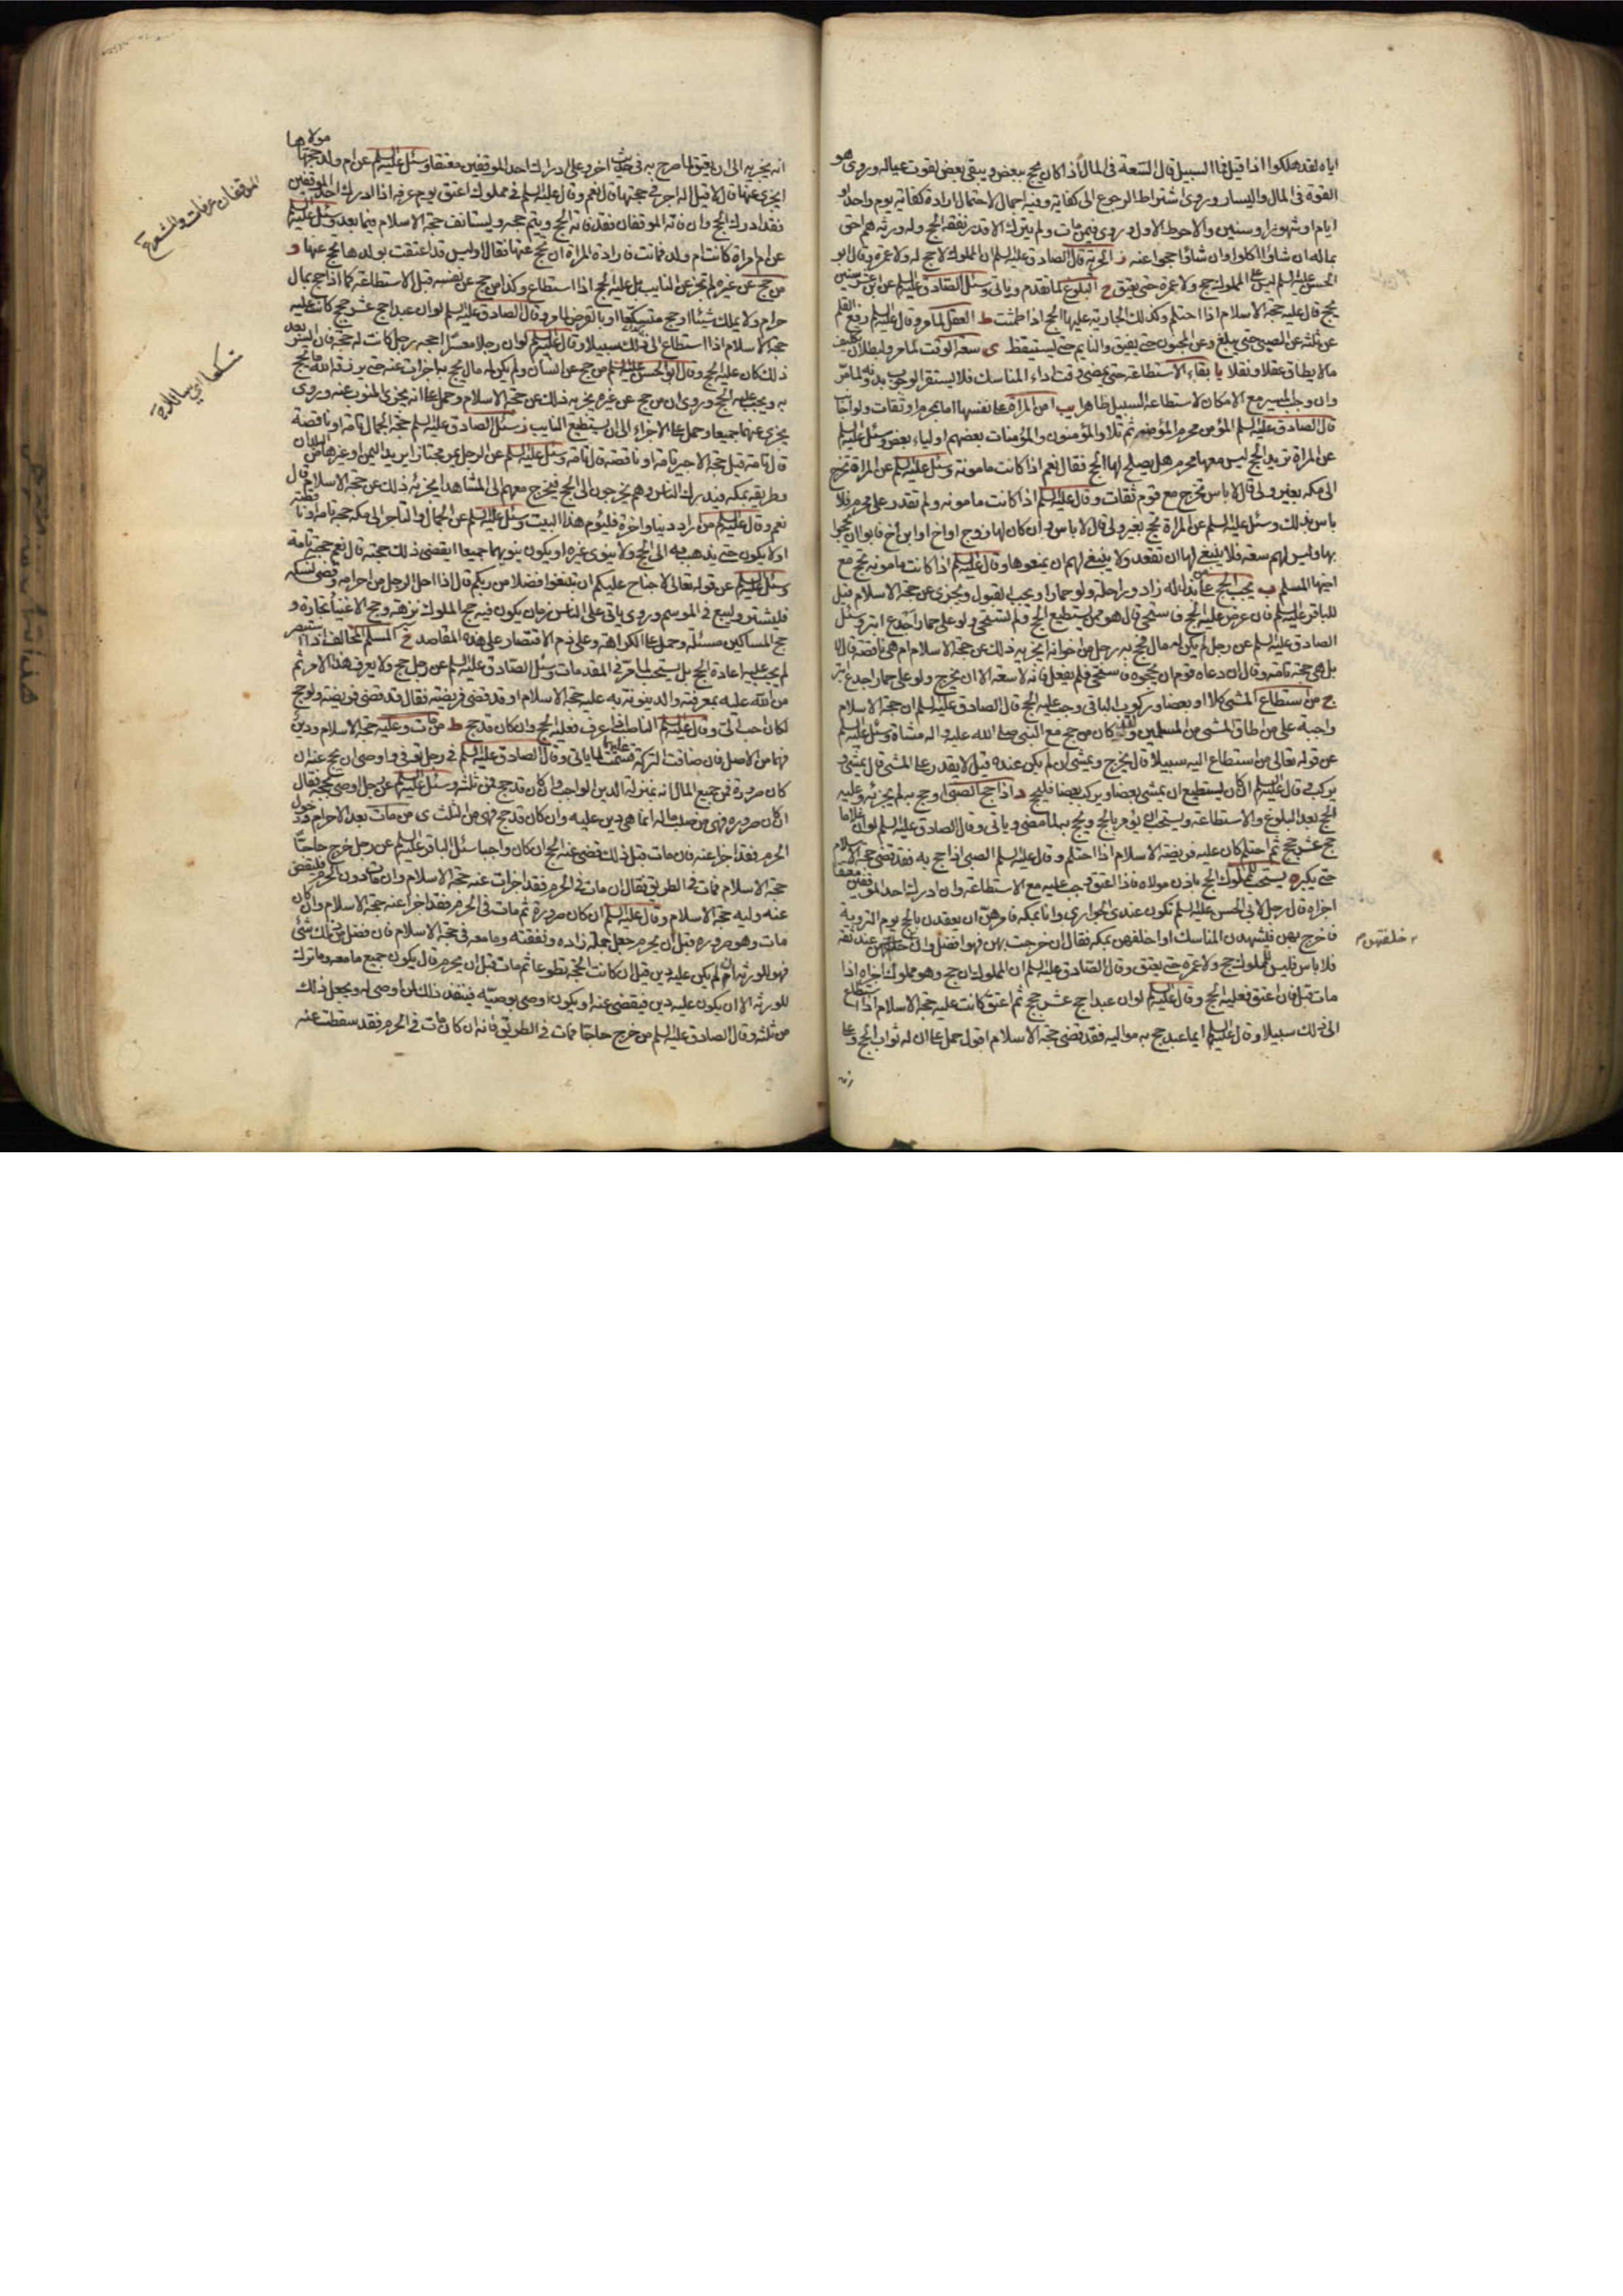 اياه لقد هلكوا اذا قيل فما السبيل قال السّعة في المال اذا كان يحج ببعض ويبقى بعض لقوت عياله وروى هو
القوة في المال واليسار وروى اشتراط الرجوع الى كفاية وفيه اجمال لاحتمال ارادة كفاية يوم واحد او
ايام او شهور او سنين والاحوط الاول وروى فيمن مات ولم يترك الا قدر نفقة الحج وله ورثة هم احق
بماله ان شاؤا اكلوا وان شاؤا حجوا عنه ز الحرية قال الصادق عليه السلم ان المملوك لا حج له ولا عمرة وقال ابو
الحسن عليه السلم ليس على المملوك حج ولا عمرة حتى يعتق ح البلوغ لما تقدم وياتي وسئل الصادق عليه السلم عن ابن عشر سنين
يحج قال عليه حجة الاسلام اذا احتلم وكذلك الجارية عليها الحج اذا طمثت ط العقل لما مر وقال عليه السلم رفع القلم
عن ثلثة عن الصبي حتى يبلغ وعن المجنون حتى يفيق والنايم حتى يستيقظ ي سعة الوقت لما مر ولبطلان تكليف
ما لا يطاق عقلا ونقلا يا بقاء الاستطاعة حتى يمضي وقت اداء المناسك فلا يستقر الوجوب بدونه لما مر
وان وجب المسير مع الامكان لاستطاعة السبيل ظاهرا يب امن المراة على نفسها اما بمحرم او ثقات ولو اجانب
قال الصادق عليه السلم المؤمن محرم المؤمنة ثم تلا والمؤمنون والمؤمنات بعضهم اولياء بعض وسئل عليه السلم
عن المراة تريد الحج ليس معها محرم هل يصلح لها الحج فقال نعم اذا كانت مامونة وسئل عليه السلم عن المراة تخرج
الى مكة بغير ولي قال لا باس تخرج مع قوم ثقات وقال عليه السلم اذا كانت مامونة ولم تقدر على محرم فلا
باس بذلك وسئل عليه السلم عن المراة تحج بغير ولي قال لا باس وان كان لها زوج او اخ او ابن اخ فابوا ان يحجوا
بها وليس لهم سعة فلا ينبغي لها ان تقعد ولا ينبغي لهم ان يمنعوها وقال عليه السلم اذا كانت مامونة تحج مع
اخيها المسلم ب يجب الحج على من بذل له زاد وراحلة ولو حمارا ويجب القبول ويجزي عن حجة الاسلام قيل
للباقر عليه السلم فان عرض عليه الحج فاستحيى قال هو ممن يستطيع الحج ولم يستحيى ولو على حمار اجدع ابتر وسئل
الصادق عليه السلم عن رجل لم يكن له مال فحج به رجل من اخوانه ايجزيه ذلك عن حجة الاسلام ام هي ناقصة قال لا
بل هي حجة تامة وقال ان دعاه قوم ان يحجوه فاستحيى فلم يفعل فانه لا يسعه الا ان يخرج ولو على حمار اجدع ابتر
ج من استطاع المشي كلا او بعضا وركوب الباقي وجب عليه الحج قال الصادق عليه السلم ان حجة الاسلام
واجبة على من اطاق المشي من المسلمين ولقد كان من حج مع النبي صلى الله عليه واله مشاة وسئل عليه السلم
عن قوله تعالى من استطاع اليه سبيلا قال يخرج ويمشي ان لم يكن عنده قيل لا يقدر على المشي قال يمشي و
يركب وقال عليه السلم ان كان يستطيع ان يمشي بعضا ويركب بعضا فليحج د اذا حج الصبي او حج به لم يجزئه وعليه
الحج بعد البلوغ والاستطاعة ويستحب ان يؤمر بالحج ويحج به لما مضى وياتي وقال الصادق عليه السلم لو ان غلاما
حج عشر حجج ثم احتلم كان عليه فريضة الاسلام اذا احتلم وقال عليه السلم الصبي اذا حج به فقد قضى حجة الاسلام
حتى يكبر ه يستحب للمملوك الحج باذن مولاه فاذا اعتق وجب عليه مع الاستطاعة وان ادرك احد الموقفين معتقا
اجزاه قال رجل لابي الحسن عليه السلم تكون عندي الجواري وانا بمكة فامرهن ان يعقدن بالحج يوم التروية
فاخرج بهن فيشهدن المناسك او اخلفهن بمكة فقال ان خرجت بهن فهو افضل وان خلفتهن عند ثقة
فلا باس فليس للمملوك حج ولا عمرة حتى يعتق وقال الصادق عليه السلم ان المملوك ان حج وهو مملوك اجزاه اذا
مات قبل فان اعتق فعليه الحج وقال عليه السلم لو ان عبدا حج عشر حجج ثم اعتق كانت عليه حجة الاسلام اذا استطاع
الى ذلك سبيلا وقال عليه السلم ايما عبد حج به مواليه فقد قضى حجة الاسلام اقول حمل على ان له ثواب الحج وعلى
انه
خلفتهن م
انه يجزيه الى ان يعتق لما صرح به في حديث اخر وعلى ادراك احد الموقفين معتقا وسئل عليه السلم عن ام ولد حجها مولاها
ايجزي عنها قال لا قيل له اجر في حجتها قال نعم وقال عليه السلم في مملوك اعتق يوم عرفة اذا ادرك احد الموقفين
فقد ادرك الحج وان فاته الموقفان فقد فاته الحج ويتم حجه ويستانف حجة الاسلام فيما بعد وسئل عليه السلم
عن ام امراة كانت ام ولد فماتت فارادت المراة ان تحج عنها فقال اوليس قد اعتقت بولدها تحج عنها و
من حج عن غيره لم تجز عن النايب بل عليه الحج اذا استطاع وكذا من حج عن نفسه قبل الاستطاعة كما اذا حج بمال
حرام ولا يملك شيئا او حج متسكعا او بالقرض لما مر وقال الصادق عليه السلم لو ان عبدا حج عشر حجج كانت عليه
حجة الاسلام اذا استطاع الى ذلك سبيلا وقال عليه السلم لو ان رجلا معسرا احجه رجل كانت له حجة فان ايسر بعد
ذلك كان عليه الحج وقال ابو الحسن عليه السلم من حج عن انسان ولم يكن له مال يحج به اجزات عنه حتى يرزقه الله ما يحج
به ويجب عليه الحج وروى ان من حج عن غيره يجزيه ذلك عن حجة الاسلام وحمل على انه يجزي المنوب عنه وروى
يجزي عنهما جميعا وحمل على الاجزاء الى ان يستطيع النايب ز سئل الصادق عليه السلم حجة الجمال تامة او ناقصة
قال تامة قيل حجة الاجير تامة او ناقصة قال تامة وسئل عليه السلم عن الرجل يمر مجتازا يريد اليمن او غيرها من البلدان
وطريقه بمكة فيدرك الناس وهم يخرجون الى الحج فيخرج معهم الى المشاهد ايجزيه ذلك عن حجة الاسلام قال
نعم وقال عليه السلم من اراد دنيا واخرة فليؤم هذا البيت وسئل عليه السلم عن الجمال والتاجر الى مكة حجه تامة او ناقصة
او لا يكون حتى يذهب به الى الحج ولا ينوي غيره او يكون ينويهما جميعا ايقضي ذلك حجته قال نعم حجته تامة
وسئل عليه السلم عن قوله تعالى لا جناح عليكم ان تبتغوا فضلا من ربكم قال اذا احل الرجل من احرامه وقضى نسكه
فليشتر وليبع في الموسم وروى ياتي على الناس زمان يكون فيه حج الملوك نزهة وحج الاغنياء تجارة و
حج المساكين مسئلة وحمل على الكراهة وعلى ذم الاقتصار على هذه المقاصد ح المسلم المخالف اذا استبصر
لم يجب عليه اعادة الحج بل يستحب لما مر في المقدمات وسئل الصادق عليه السلم عن رجل حج ولا يعرف هذا الامر ثم
من الله عليه بمعرفته والدينونة به عليه حجة الاسلام او قد قضى فريضته فقال قد قضى فريضته ولو حج
لكان احب الي وقال عليه السلم الناصب اذا عرف فعليه الحج وان كان قد حج ط من مات وعليه حجة الاسلام ودين
فهما من الاصل فان ضاقت التركة قسمت عليهما لما ياتي وقال الصادق عليه السلم في رجل توفي واوصى ان يحج عنه ان
كان صرورة فمن جميع المال انه بمنزلة الدين الواجب وان كان قد حج فمن ثلثه وسئل عليه السلم عن رجل اوصى بحجة فقال
ان كان صرورة فهي من صلب ماله انما هي دين عليه وان كان قد حج فهي من الثلث ي من مات بعد الاحرام ودخول
الحرم فقد اجزا عنه فان مات قبل ذلك قضى عنه الحج ان كان واجبا سئل الباقر عليه السلم عن رجل خرج حاجا
حجة الاسلام فمات في الطريق فقال ان مات في الحرم فقد اجزات عنه حجة الاسلام وان مات دون الحرم فليقض
عنه وليه حجة الاسلام وقال عليه السلم ان كان صرورة ثم مات في الحرم فقد اجزا عنه حجة الاسلام وان كان
مات وهو صرورة قبل ان يحرم جعل جمله وزاده ونفقته وما معه في حجة الاسلام فان فضل من ذلك شئ
فهو للورثة ان لم يكن عليه دين قيل ان كانت الحجة تطوعا ثم مات قبل ان يحرم قال يكون جميع ما معه وما ترك
للورثة الا ان يكون عليه دين فيقضى عنه او يكون اوصى بوصية فينفذ ذلك لمن اوصى له ويجعل ذلك
من ثلثه وقال الصادق عليه السلم من خرج حاجا فمات في الطريق فانه ان كان مات في الحرم فقد سقطت عنه
الموقفان عرفات والمشعر